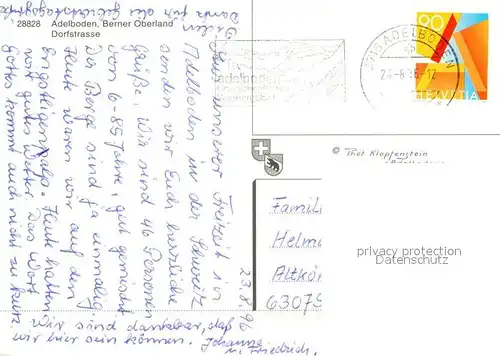 28828 Adelboden, Berner Oberland
Dorfstrasse
Vielen Dank für die Geburtstagsgrüße
Aus unserer Freizeit in
Adelboden in der Schweiz
senden wir Euch herzliche
Grüße. Wir sind 46 Personen
von 6-85 Jahre, gut gemischt
Die Berge sind ja einmalig.
Heute waren wir auf den
Engstligenalp. Heute hatten
wir gutes Wetter. Das Wort
Gottes kommt auch nicht zu kurz.
Wir sind dankbar, daß
wir hier sein können. Johanna
u. Friedrich.
23.8.96
90
HELVETIA
ADELBODEN
Adelboden
© Phot Klopfenstein
Adelboden
Famil
Helmu
Altkön
63075
privacy protection
Datenschutz